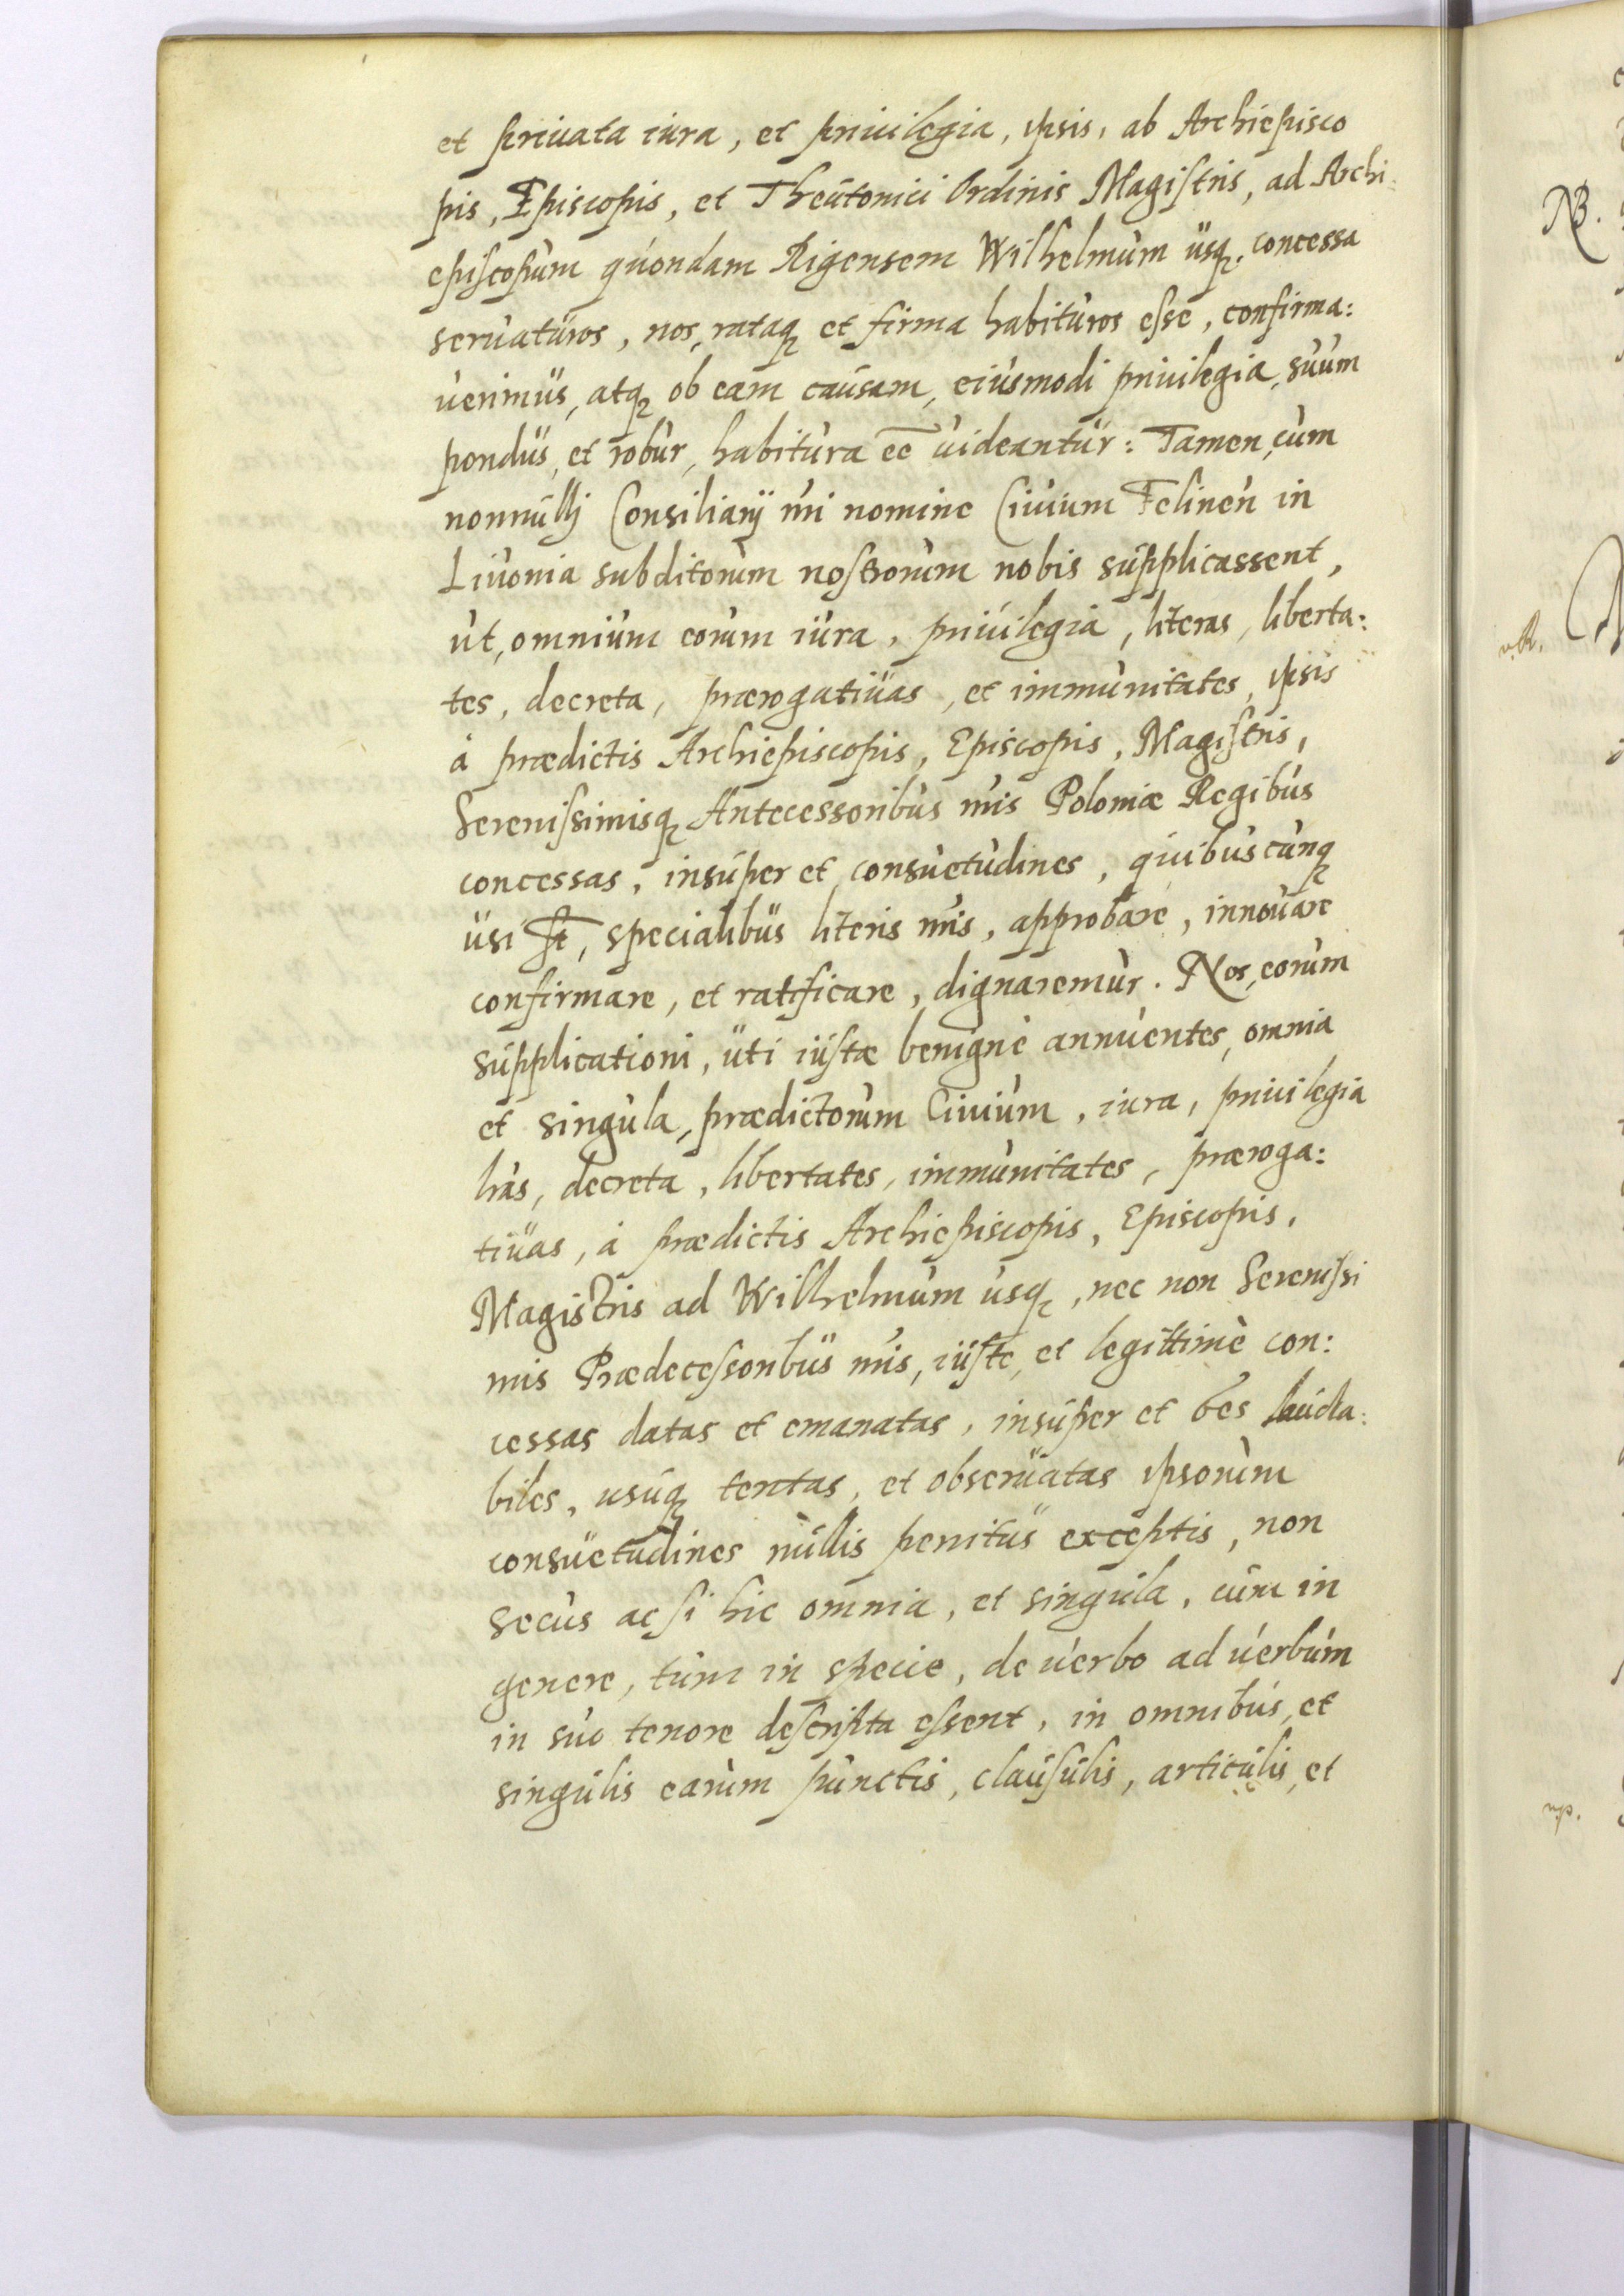 et priuata iura, et priuilegia, ipsis, ab Archiepisco
pis, Episcopis, et Theutonici Ordinis Magistris, ad Archi:
episcopum quondam Rigensem Wilhelmum usq. concessa
seruaturos, nos, rataq et firma habituros esse, confirma:
uerimus, atq ob eam causam, eiusmodi priuilegia, suum
pondus, et robur, habitura eē uideantur: Tamen, cum
nonnulli Consiliarij nri nomine Ciuium Felinen in
Liuonia subditorum nostrorum nobis supplicassent,
ut, omnium eorum iura, priuilegia, literas, liberta:
tes, decreta, prærogatiuas, et immunitates, ipsis
à prædictis Archiepiscopis, Episcopis, Magistris,
Serenissimisq Antecessoribus nris Poloniæ Regibus
concessas, insuper et consuetudines, quibuscunq
usi st, specialibus literis nris, approbare, innouare
confirmare, et ratificare, dignaremur. Nos, eorum
supplicationi, uti iustæ benignè annuentes, omnia
et singula, prædictorum Ciuium, iura, priuilegia
lras, decreta, libertates, immunitates, præroga:
tiuas, à prædictis Archiepiscopis, Episcopis,
Magistris ad Wilhelmum usq, nec non Serenissi
mis Prædecessoribus nris, iuste, et legittimè con:
cessas datas et emanatas, insuper et oēs lauda:
biles, usuq tentas, et obseruatas ipsorum
consuetudines nullis penitus exceptis, non
secus ac si hic omnia, et singula, cum in
genere, tum in specie, de uerbo ad uerbum
in suo tenore descripta essent, in omnibus, et
singulis earum punctis, clausulis, articulis, et
NB.